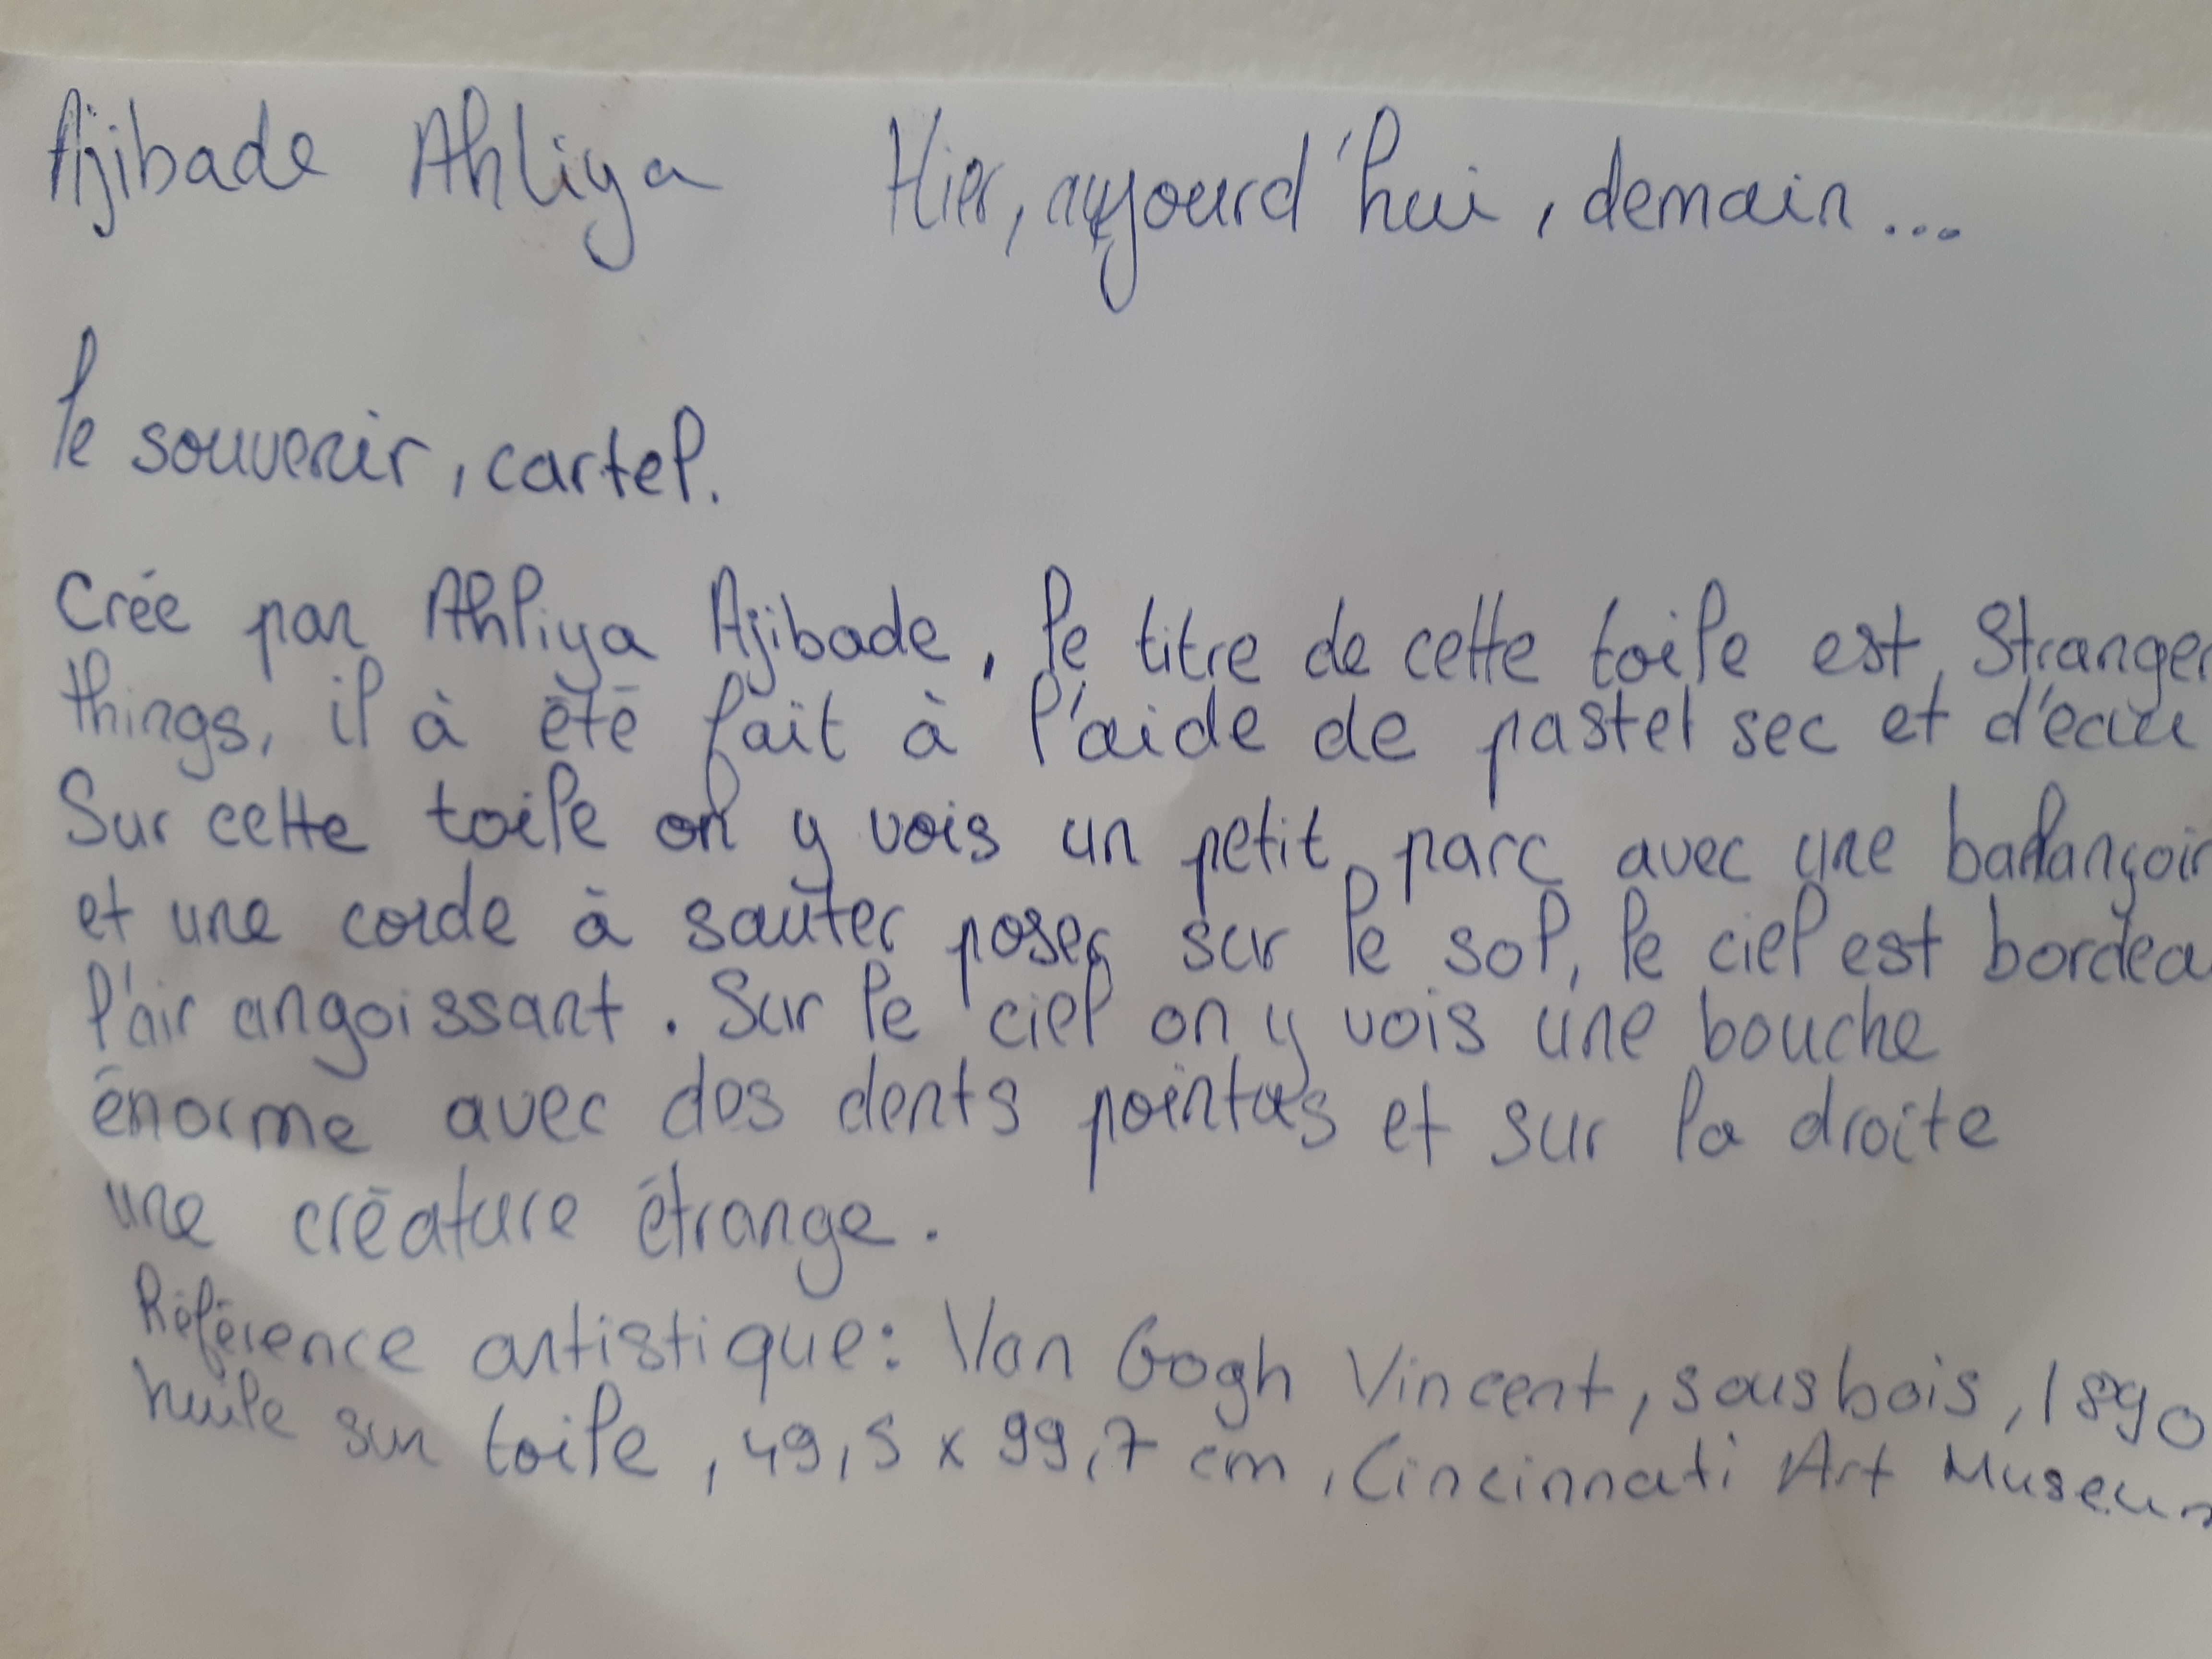 Ajibade Ahliya Hier, aujourd'hui, demain...
le souvenir, cartel.
Crée par Ahliya Ajibade, le titre de cette toile est, Stranger
things, il à été fait à l'aide de pastel sec et d'eau
Sur cette toile on y vois un petit parc avec une balançoir
et une corde à sauter poser sur le sol, le ciel est bordea
l'air angoissant. Sur le ciel on y vois une bouche
énorme avec des dents pointues et sur la droite
une créature étrange.
Référence artistique: Van Gogh Vincent, sous bois, 1890
huile sur toile, 49,5 x 99,7 cm, Cincinnati Art Museum